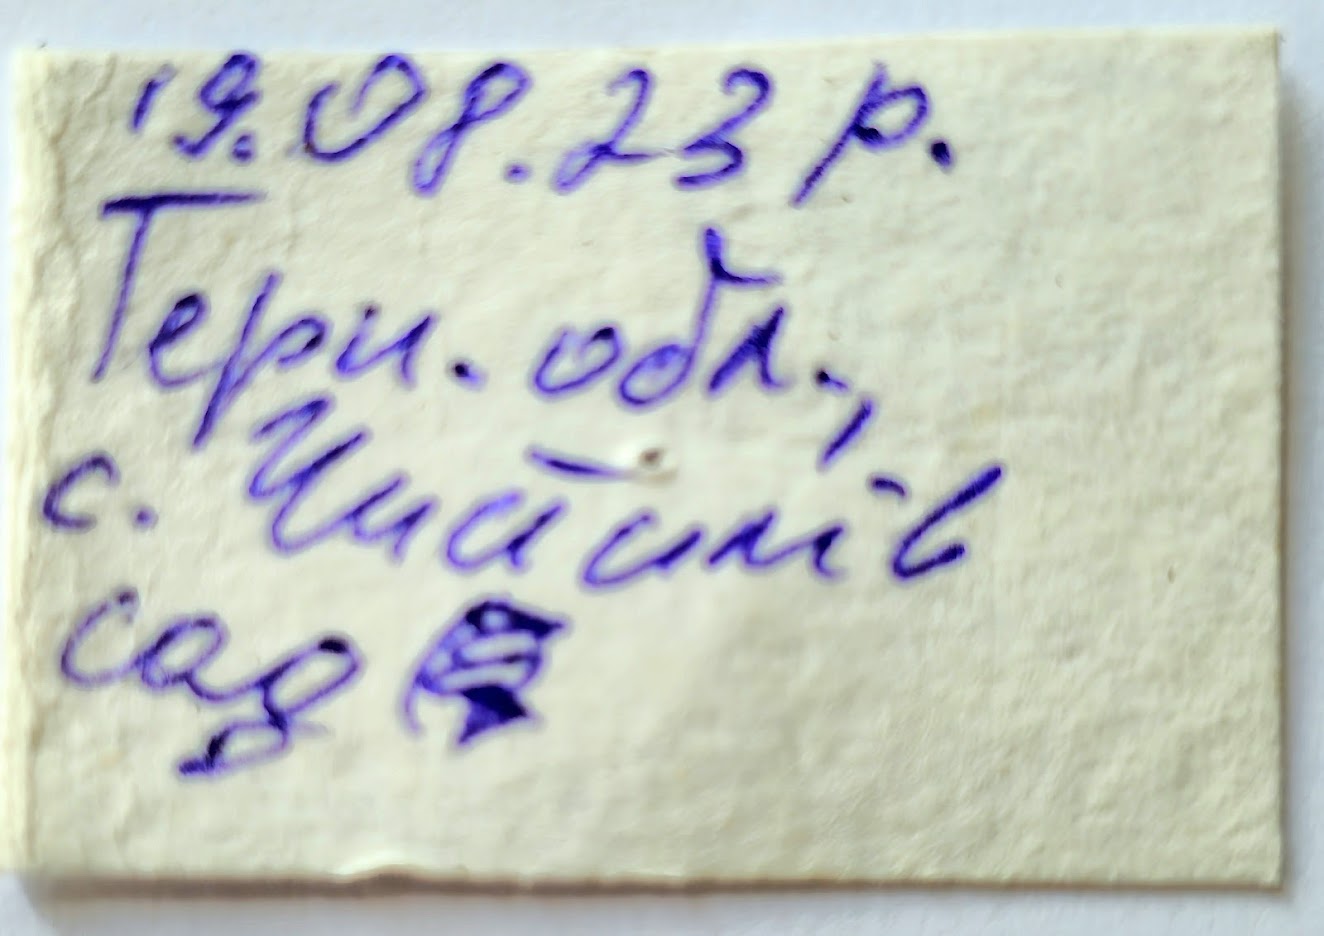 19.08.23 р.
Терн. обл.,
с. Чистилів
сад